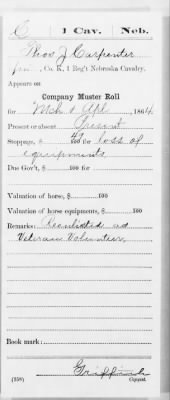 C | 1 Cav. | Neb.
Thos J Carpenter
Co. K, 1 Reg't Nebraska Cavalry.
Appears on
Company Muster Roll
for Mch & Apl, 1864.
Present or absent Present
Stoppage, $ 100 for loss of
equipments
Due Gov't, $ 100 for
Valuation of horse, $ 100
Valuation of horse equipments, $ 100
Remarks: Reenlisted as
Veteran Volunteer
Book mark:
(358) Copyist.